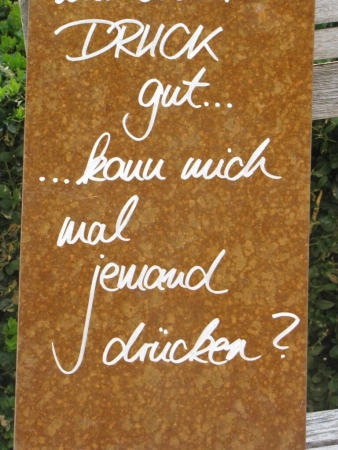 DRUCK
gut...
...kann mich
mal
jemand
drücken?